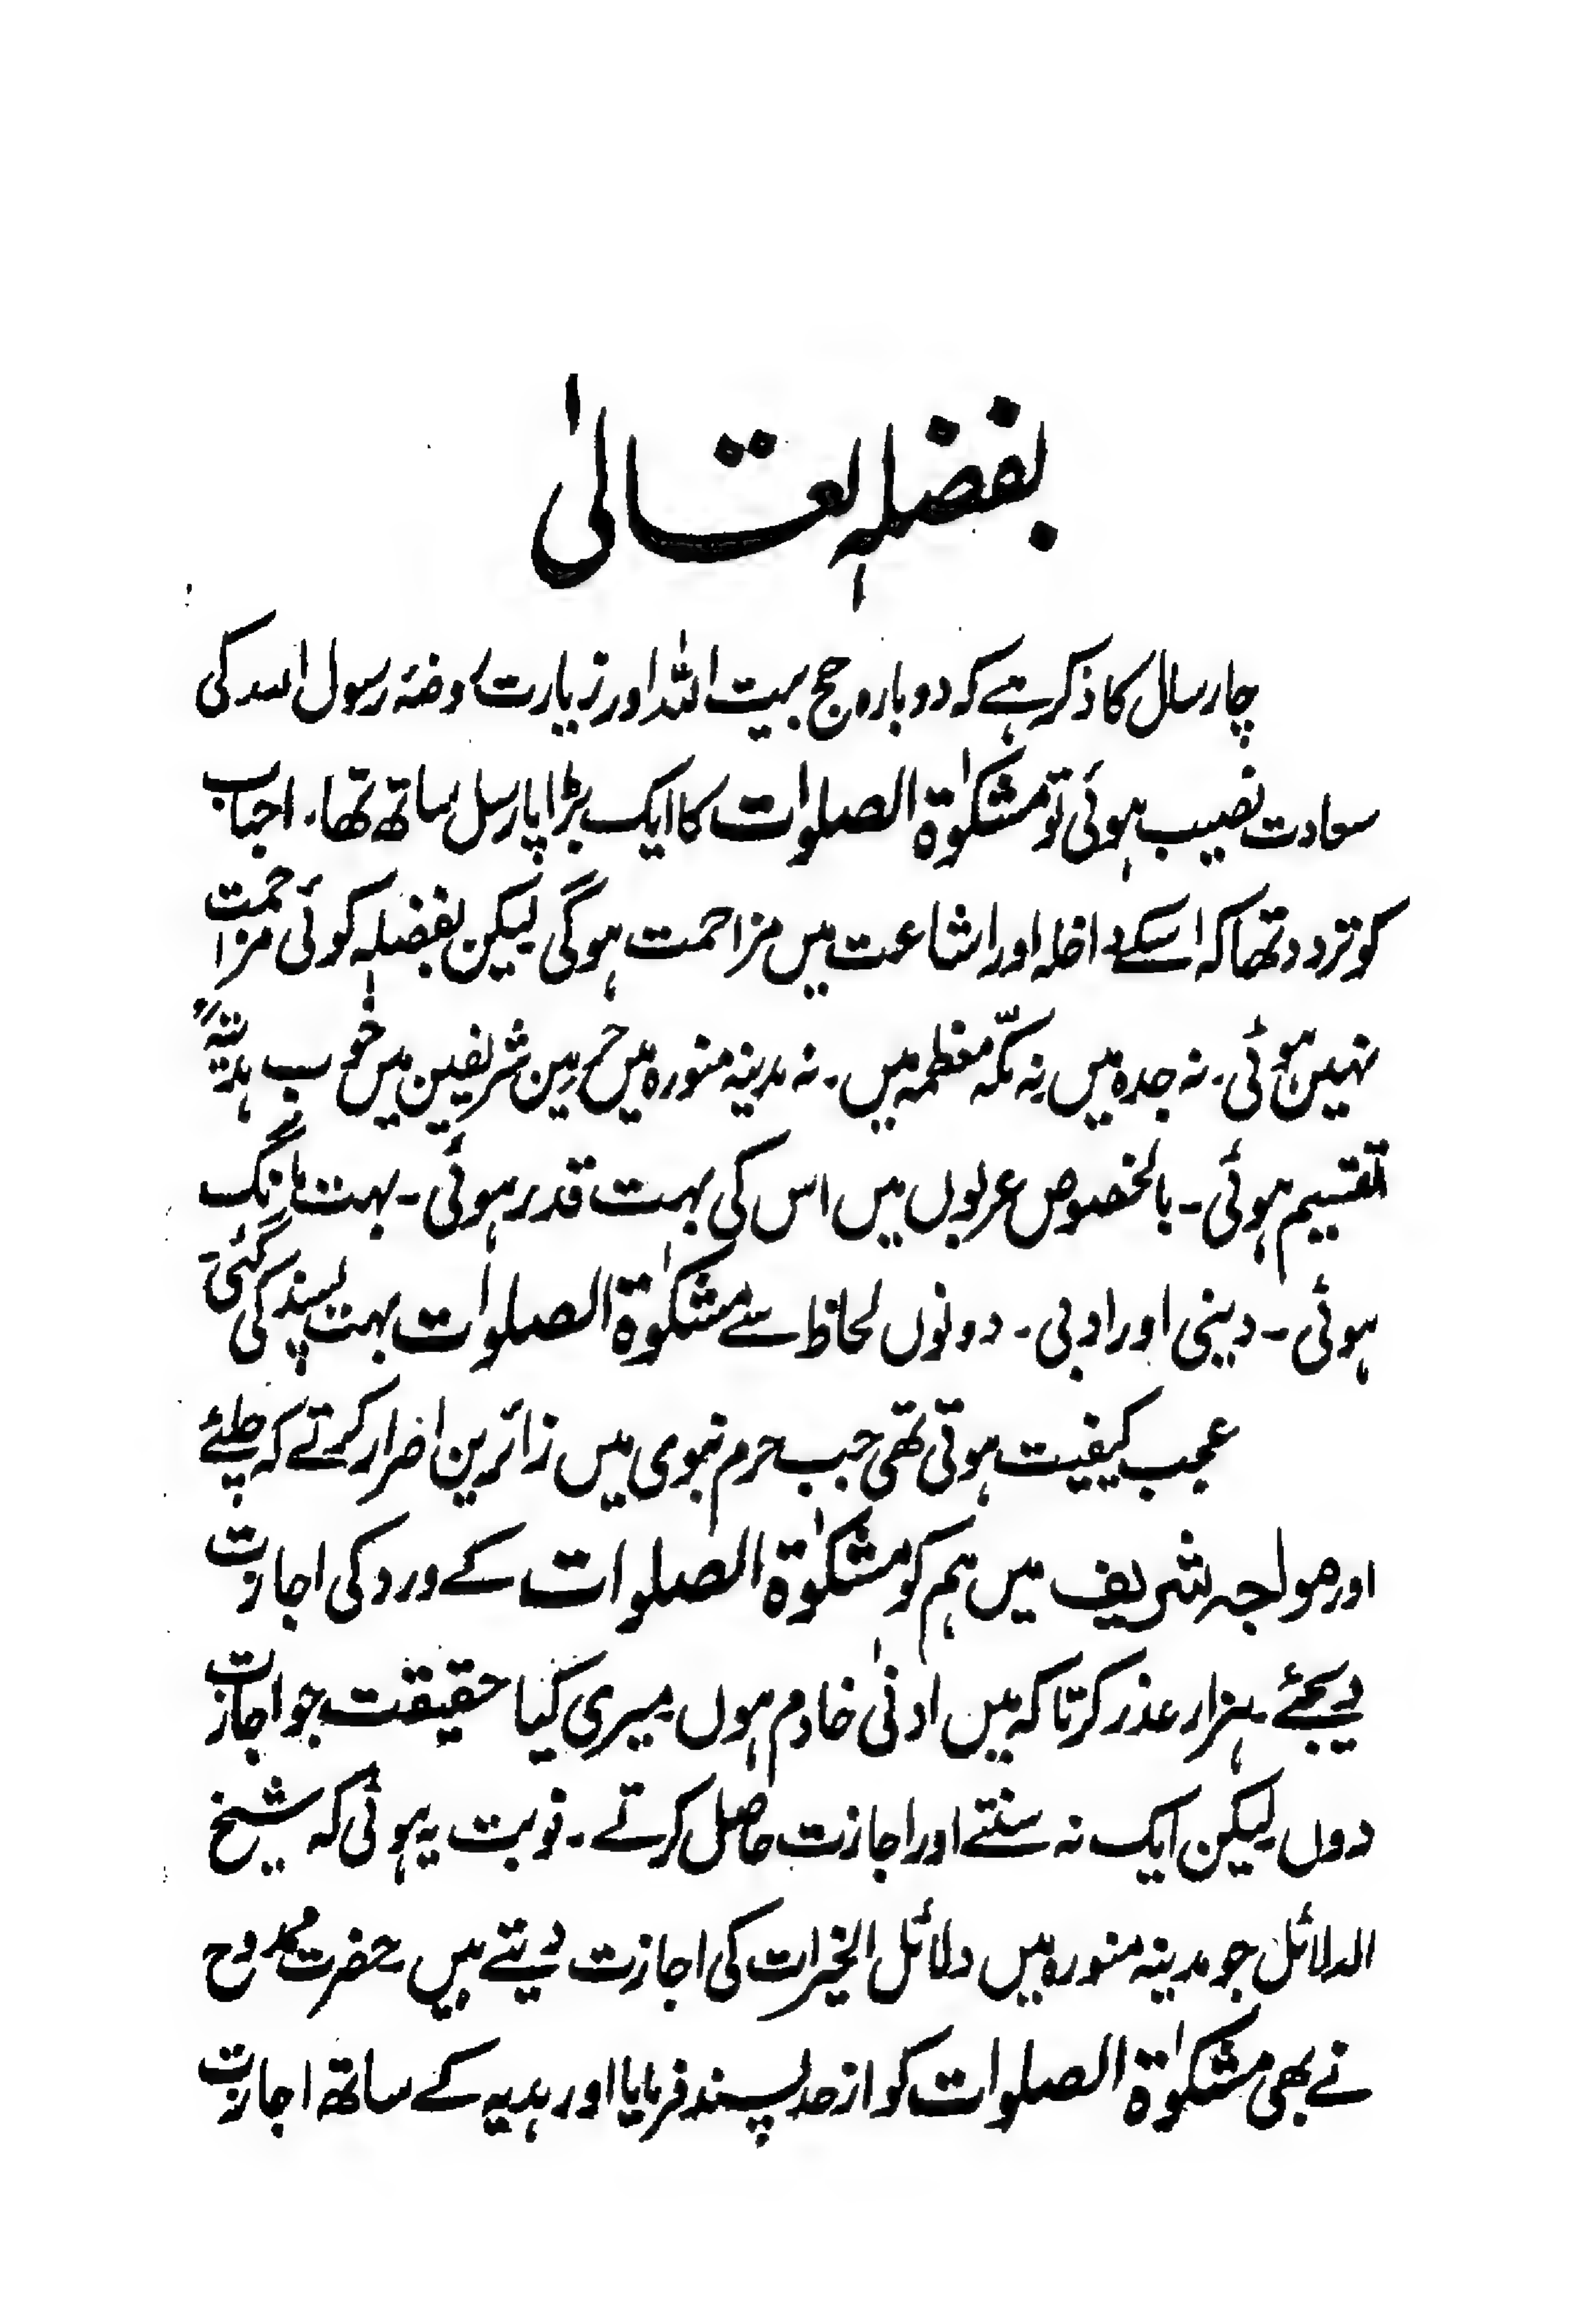 بفضلہٖ تعالیٰ
چار سال کا ذکر ہے کہ دوبارہ حج بیت اللہ اور زیارت روضۂ رسول اللہ کی
سعادت نصیب ہوئی تو مشکوٰۃ الصلوات کا ایک بڑا پارسل ساتھ تھا۔ احباب
کو تردد تھا کہ اسکے داخلہ اور اشاعت میں مزاحمت ہوگی لیکن بفضلہٖ کوئی مزاحمت
نہیں ہوئی۔ نہ جدہ میں نہ مکّہ معظمہ میں۔ نہ مدینہ منورہ میں حرمین شریفین میں خوب ہدیتہً
تقسیم ہوئی۔ بالخصوص عربوں میں اس کی بہت قدر ہوئی۔ بہت مانگ
ہوئی۔ دینی اور ادبی۔ دونوں لحاظ سے مشکوٰۃ الصلوٰات بہت پسند کی گئی
عجب کیفیت ہوتی تھی جب حرم نبوی میں زائرین اصرار کرتے کہ چلئے
اور مواجہ شریف میں ہم کو مشکوٰۃ الصلوات کے ورد کی اجازت
دیجئے۔ ہزار عذر کرتا کہ میں ادنیٰ خادم ہوں۔ میری کیا حقیقت جو اجازت
دوں لیکن ایک نہ سنتے اور اجازت حاصل کرتے۔ نوبت یہ ہوئی کہ شیخ
الدلائل جو مدینہ منورہ میں دلائل الخیرات کی اجازت دیتے ہیں حضرت ممدوح
نے بھی مشکوٰۃ الصلوات کو از حد پسند فرمایا اور ہدیہ کے ساتھ اجازت